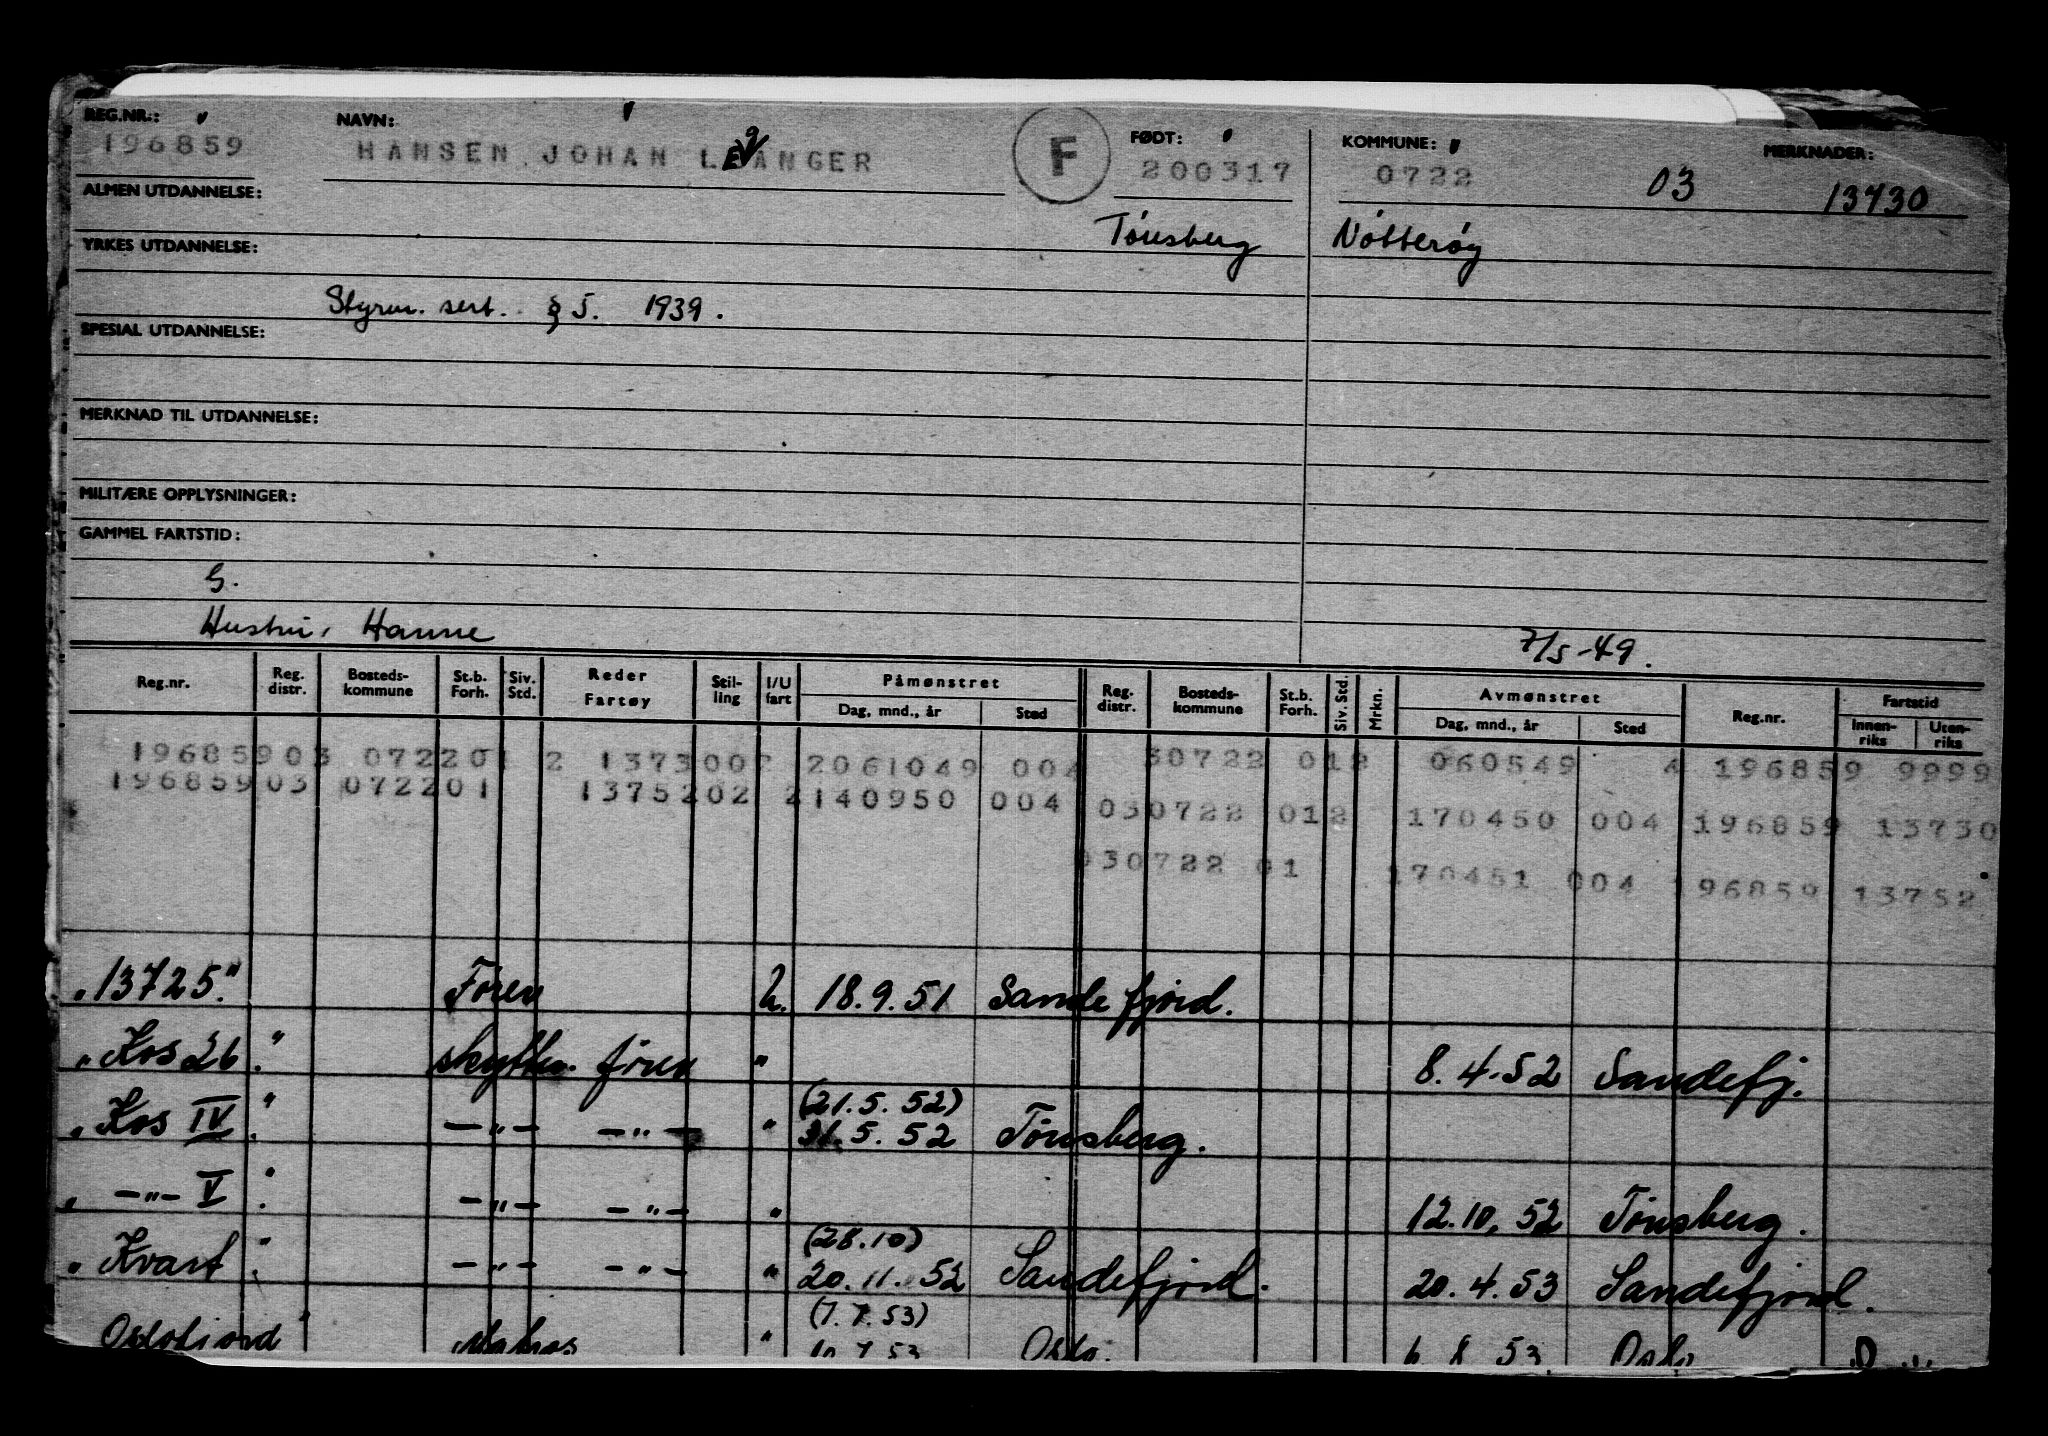 REG.NR.: NAVN: FØDT: KOMMUNE: MERKNADER:
196859 HANSEN JOHAN LEVANGER g F 200317 0722 03 13730
ALMEN UTDANNELSE:
Tönsberg Nötteröy
YRKES UTDANNELSE:
Styrm. sert. § 5. 1939.
SPESIAL UTDANNELSE:
MERKNAD TIL UTDANNELSE:
MILITÆRE OPPLYSNINGER:
GAMMEL FARTSTID:
G.
Hustru, Hanne 7/5-49.
Reg.nr. Reg. distr. Bosteds-kommune St.b. Forh. Siv. Std. Reder Fartøy Stil-ling I/U fart Påmønstret Dag, mnd., år Sted Reg. distr. Bosteds-kommune St.b. Forh. Siv. Std. Mrkn. Avmønstret Dag, mnd., år Sted Reg.nr. Fartstid Innen-riks Uten-riks
196859 03 0722 01 2 1373002 2061049 004 30722 012 060549 4 196859 9999
196859 03 0722 01 1375202 2140950 004 030722 012 170450 004 196859 13730
030722 01 170451 004 196859 13752
"13725." Fören U. 18.9.51 Sandefjord.
"Kos 26." skytter fören " 8.4.52 Sandefj.
(21.5.52)
"Kos IV." —"— —"— " 31.5.52 Tönsberg.
" —"— V." —"— —"— " 12.10.52 Tönsberg.
(28.10)
"Kvart." —"— —"— " 20.11.52 Sandefjord. 20.4.53 Sandefjord.
(7.7.53)
Oslofjord Matros " 10.7.53 Oslo. 6.8.53 Oslo